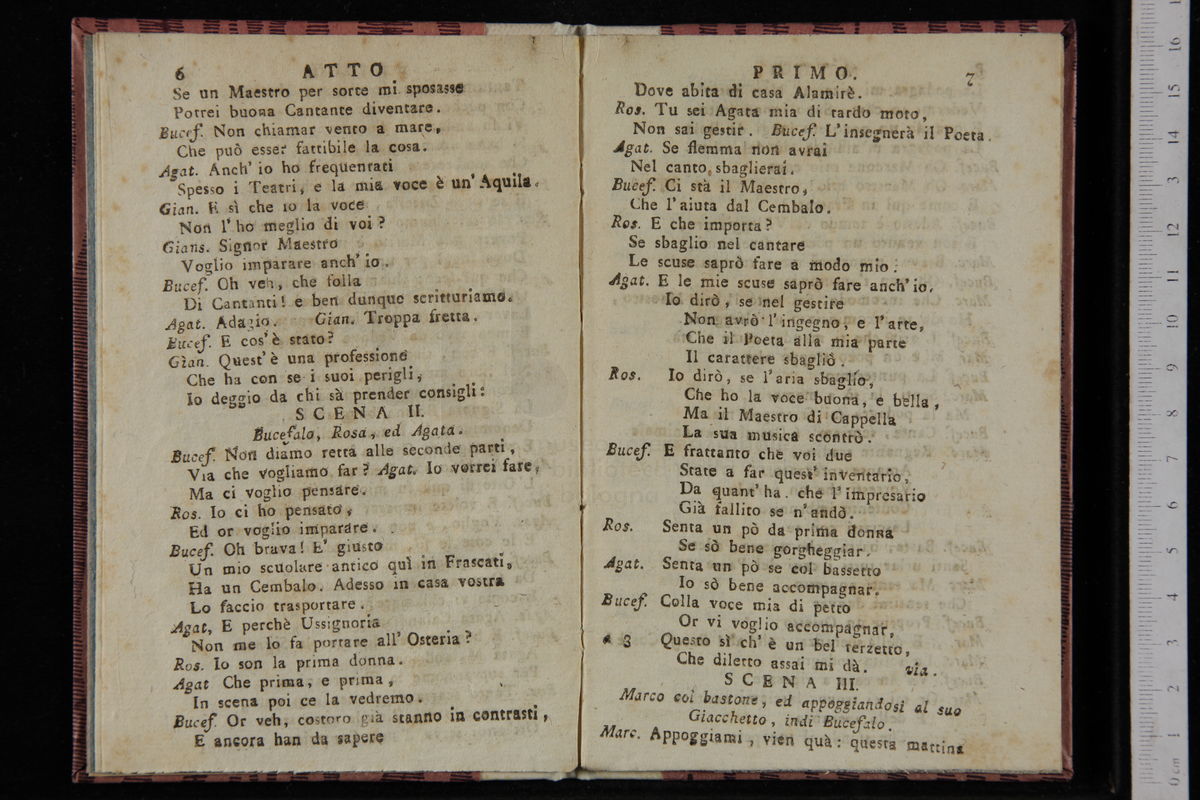 6 ATTO
Se un Maestro per sorte mi sposasse
Potrei buona Cantante diventare.
Bucef. Non chiamar vento a mare,
Che può esser fattibile la cosa.
Agat. Anch' io ho frequentati
Spesso i Teatri, e la mia voce è un' Aquila.
Gian. E sì che io la voce
Non l' ho meglio di voi?
Gians. Signor Maestro
Voglio imparare anch' io.
Bucef. Oh veh, che folla
Di Cantanti! e ben dunque scritturiamo.
Agat. Adagio. Gian. Troppa fretta.
Bucef. E cos' è stato?
Gian. Quest' è una professione
Che ha con se i suoi perigli,
Io deggio da chi sà prender consigli:
SCENA II.
Bucefalo, Rosa, ed Agata.
Bucef. Non diamo retta alle seconde parti,
Via che vogliamo far? Agat. Io vorrei fare,
Ma ci voglio pensare.
Ros. Io ci ho pensato,
Ed or voglio imparare.
Bucef. Oh brava! E' giusto
Un mio scuolare antico quì in Frascati,
Ha un Cembalo. Adesso in casa vostra
Lo faccio trasportare.
Agat, E perchè Ussignoria
Non me lo fa portare all' Osteria?
Ros. Io son la prima donna.
Agat Che prima, e prima,
In scena poi ce la vedremo.
Bucef. Or veh, costoro già stanno in contrasti,
E ancora han da sapere
PRIMO. 7
Dove abita di casa Alamirè.
Ros. Tu sei Agata mia di tardo moto,
Non sai gestir. Bucef. L' insegnerà il Poeta.
Agat. Se flemma non avrai
Nel canto sbaglierai.
Bucef. Ci stà il Maestro,
Che l' aiuta dal Cembalo.
Ros. E che importa?
Se sbaglio nel cantare
Le scuse saprò fare a modo mio:
Agat. E le mie scuse saprò fare anch' io.
Io dirò, se nel gestire
Non avrò l' ingegno, e l' arte,
Che il Poeta alla mia parte
Il carattere sbagliò.
Ros. Io dirò, se l' aria sbaglio,
Che ho la voce buona, e bella,
Ma il Maestro di Cappella
La sua musica scontrò.
Bucef. E frattanto che voi due
State a far quest' inventario,
Da quant' ha. che l' impresario
Già fallito se n' andò.
Ros. Senta un pò da prima donna
Se sò bene gorgheggiar.
Agat. Senta un pò se col bassetto
Io sò bene accompagnar.
Bucef. Colla voce mia di petto
Or vi voglio accompagnar,
a 3 Questo sì ch' è un bel terzetto,
Che diletto assai mi dà. via.
SCENA III.
Marco col bastone, ed appoggiandosi al suo
Giacchetto, indi Bucefalo.
Marc. Appoggiami, vien quà: questa mattina